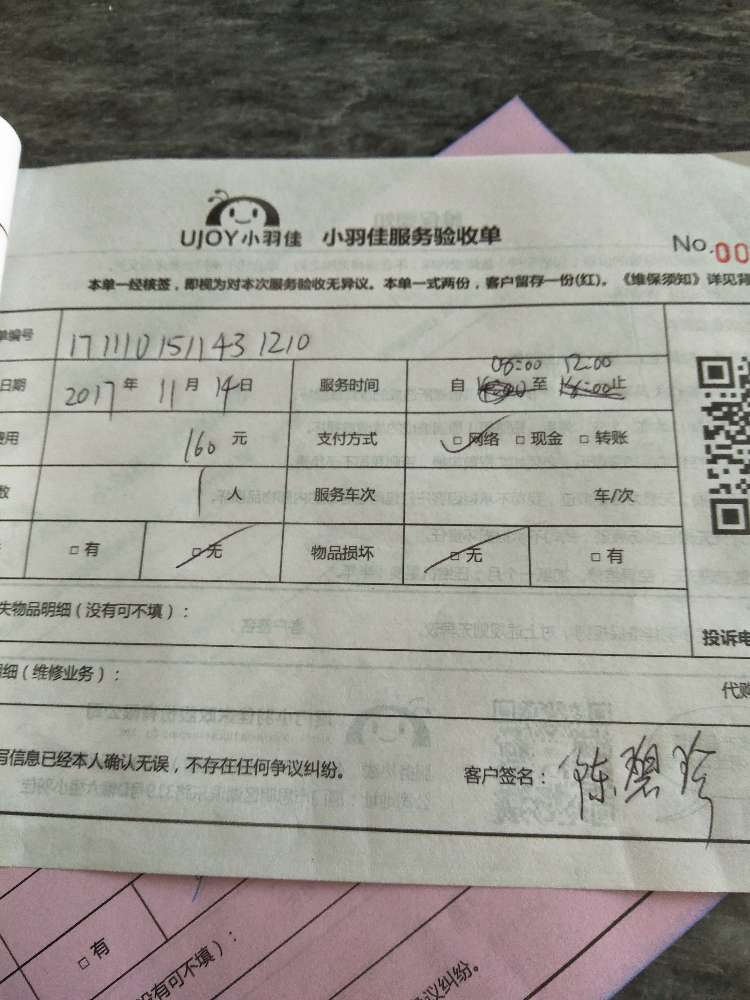 UJOY小羽佳 小羽佳服务验收单
No.00
本单一经核签，即视为对本次服务验收无异议。本单一式两份，客户留存一份(红)。《维保须知》详见背
单编号 171110151143 1210
日期 2017年 11月 14日 服务时间 自 08:00 至 12:00 止
费用 160 元 支付方式 □网络 □现金 □转账
数 1 人 服务车次 车/次
□有 □无 物品损坏 □无 □有
失物品明细（没有可不填）：
投诉电
明细（维修业务）：
代购
写信息已经本人确认无误，不存在任何争议纠纷。 客户签名：陈碧珍
□有
没有可不填）：
议纠纷。